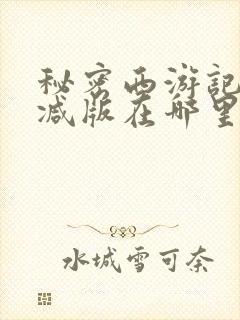 秘密西游記
减版在哪里
水城雪可奈